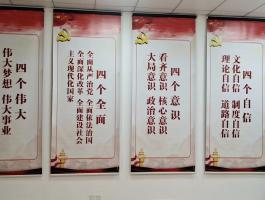 四个伟大
伟大梦想 伟大事业
四个全面
全面从严治党 全面依法治国
全面深化改革 全面建设社会
主义现代化国家
四个意识
看齐意识 核心意识
大局意识 政治意识
四个自信
文化自信 制度自信
理论自信 道路自信